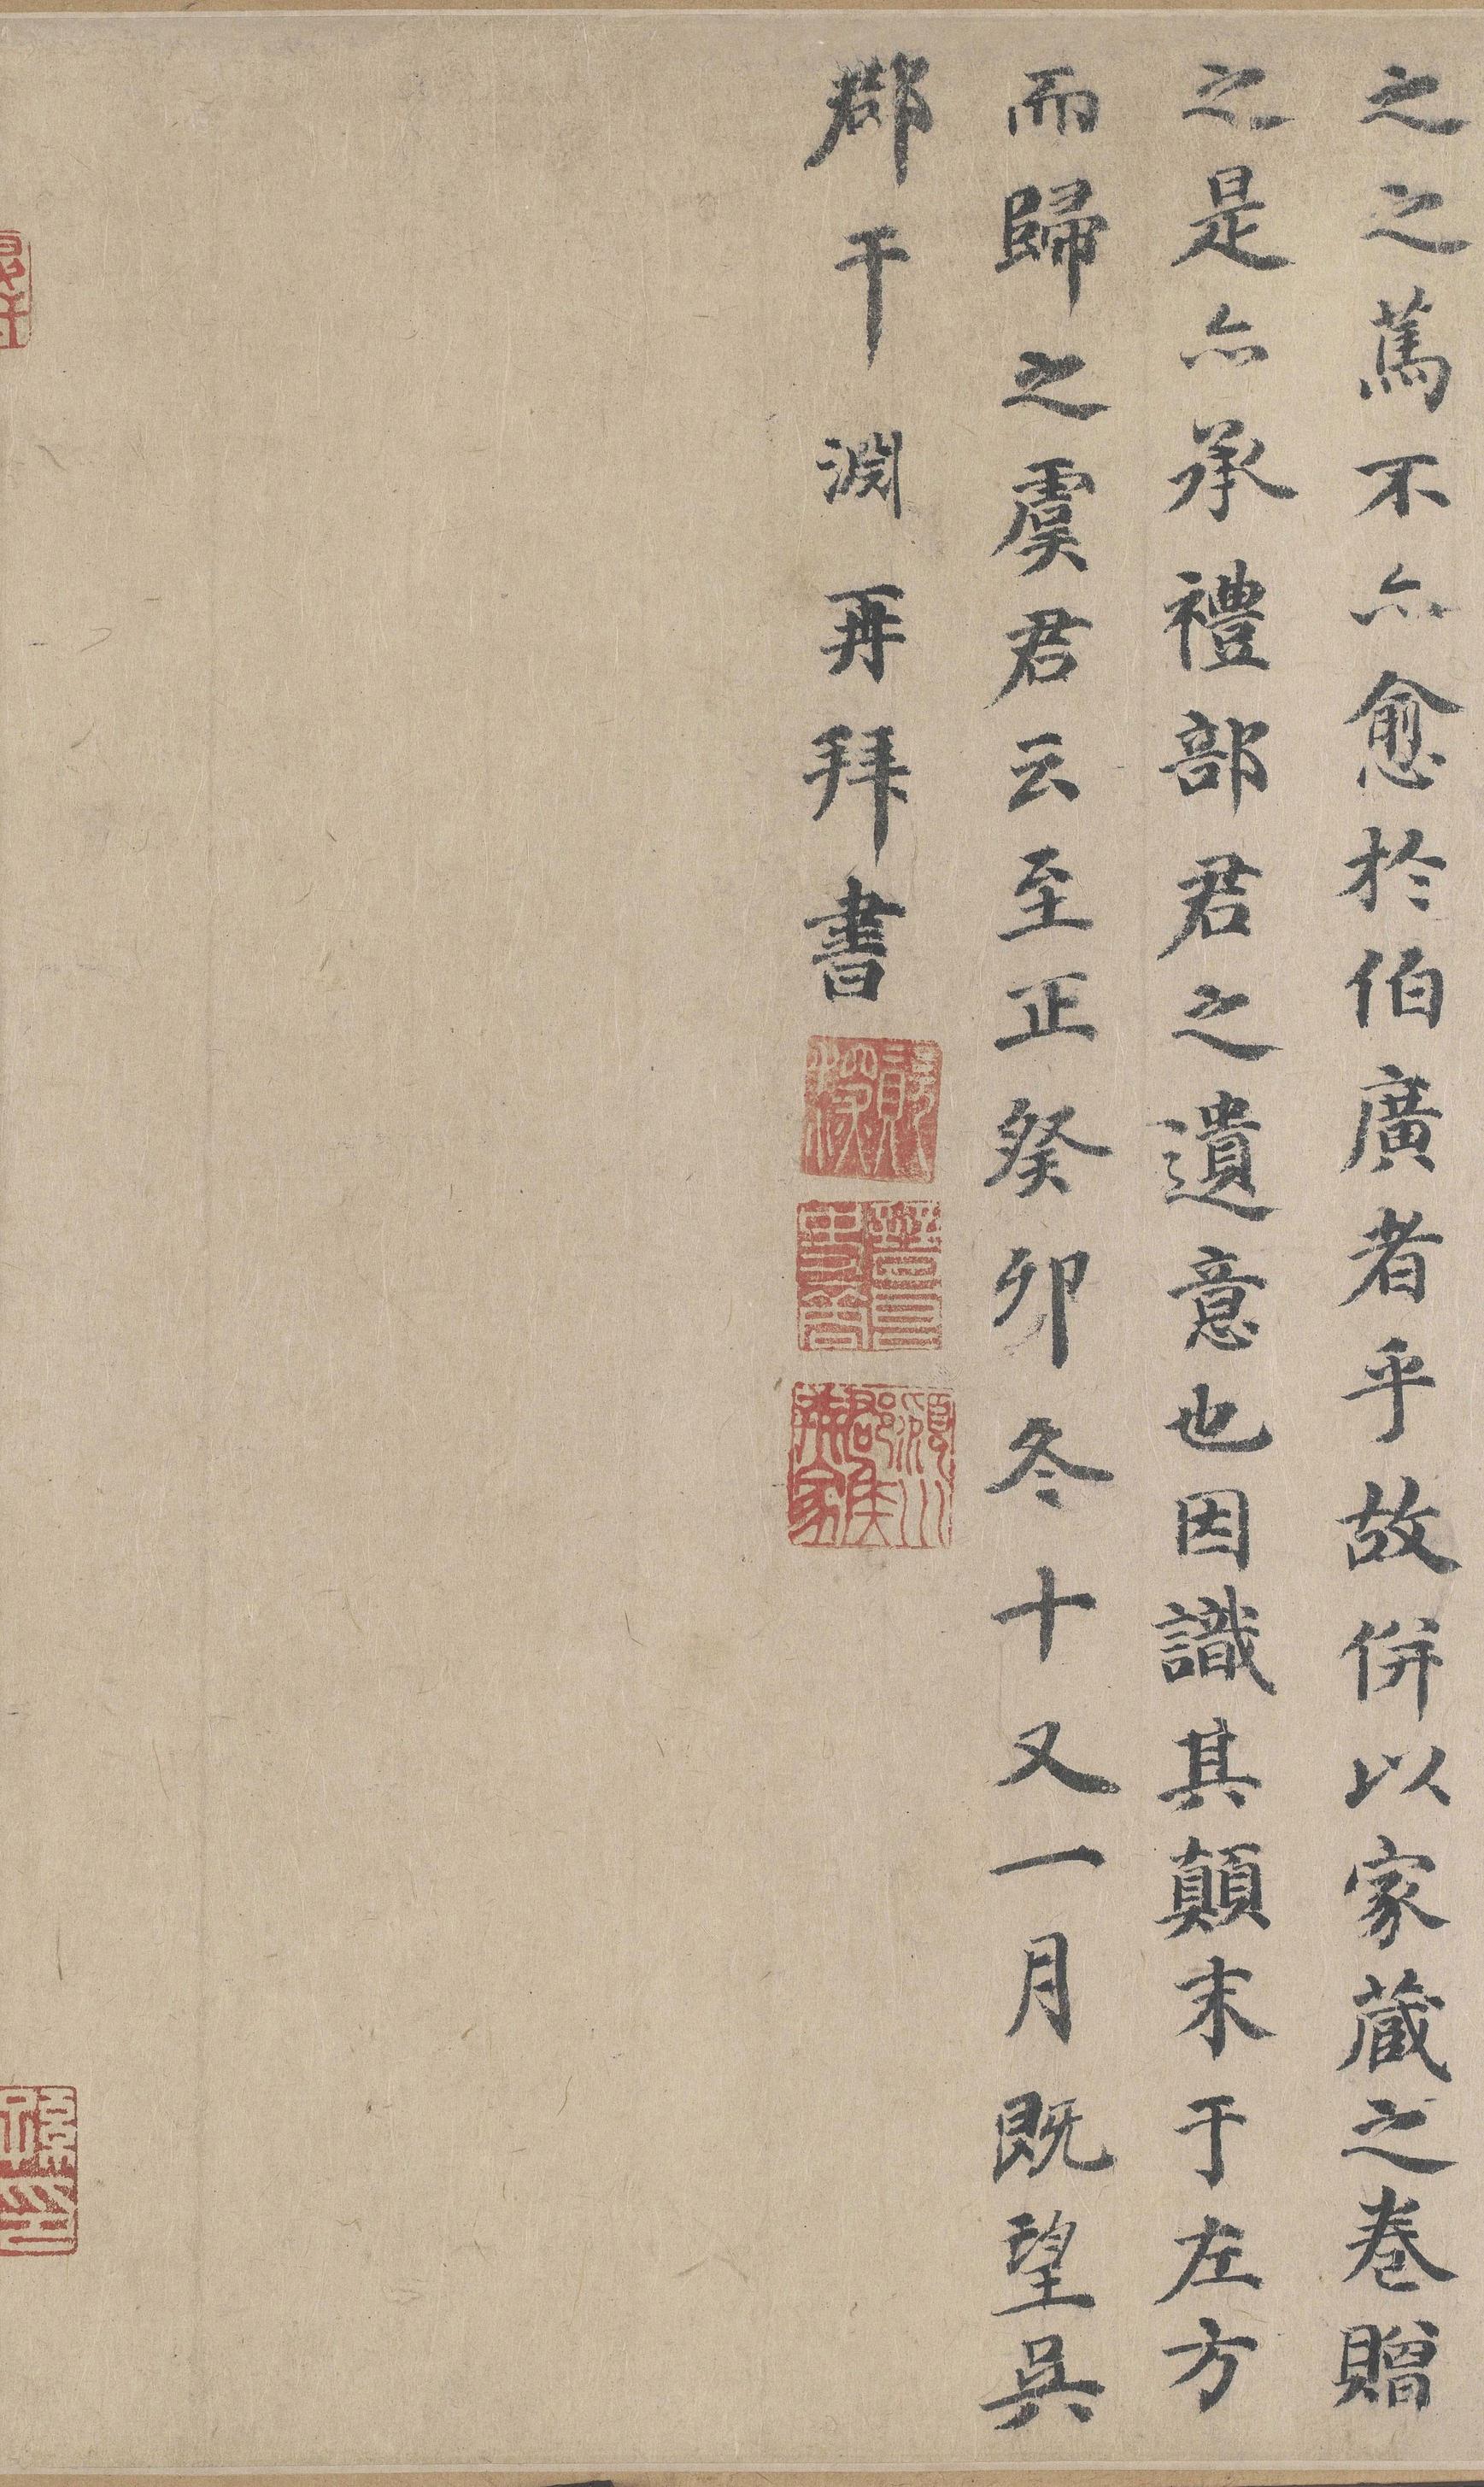 之之篤不亦愈於伯廣者乎故併以家蔵之巻贈
之是亦承禮部君之遺意也因識其顛末于左方
而歸之虞君云至正癸卯冬十又一月既望吳
郡干淵再拜書